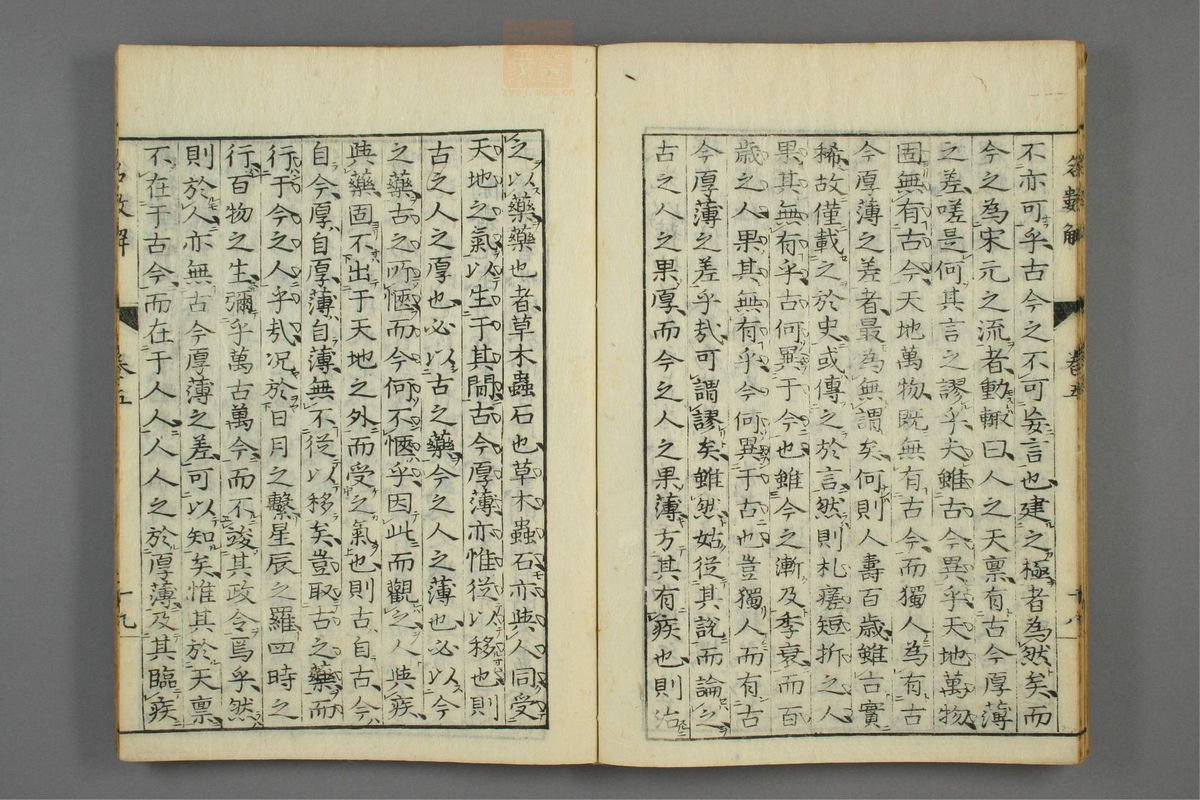 不亦可乎古今之不可妄言也建之極者為然矣而
今之為宋元之流者動輒曰人之天稟有古今厚薄
之差嗟是何其言之謬乎夫雖古今異乎天地萬物
固無有古今天地萬物既無有古今而獨人為有古
今厚薄之差者最為無謂矣何則人壽百歲雖古實
稀故僅載之於史或傳之於言然則札瘥短折之人
果其無有乎古何異于今也雖今之漸及季衰而百
歲之人果其無有乎今何異于古也豈獨人而有古
今厚薄之差乎哉可謂謬矣雖然姑從其說而論之
古之人之果厚而今之人之果薄方其有疾也則治
卷五
十八
之以藥藥也者草木蟲石也草木蟲石亦與人同受
天地之氣以生于其間古今厚薄亦惟從以移也則
古之人之厚也必以古之藥今之人之薄也必以今
之藥古之所愜而今何不愜乎因此而觀之人與疾
與藥固不出于天地之外而受之氣也則古自古今
自今厚自厚薄自薄無不從以移矣豈取古之藥而
行于今之人乎哉况於日月之繫星辰之羅四時之
行百物之生彌乎萬古萬今而不竢其政令焉乎然
則於人亦無古今厚薄之差可以知矣惟其於天稟
不在于古今而在于人人人人之於厚薄及其臨疾